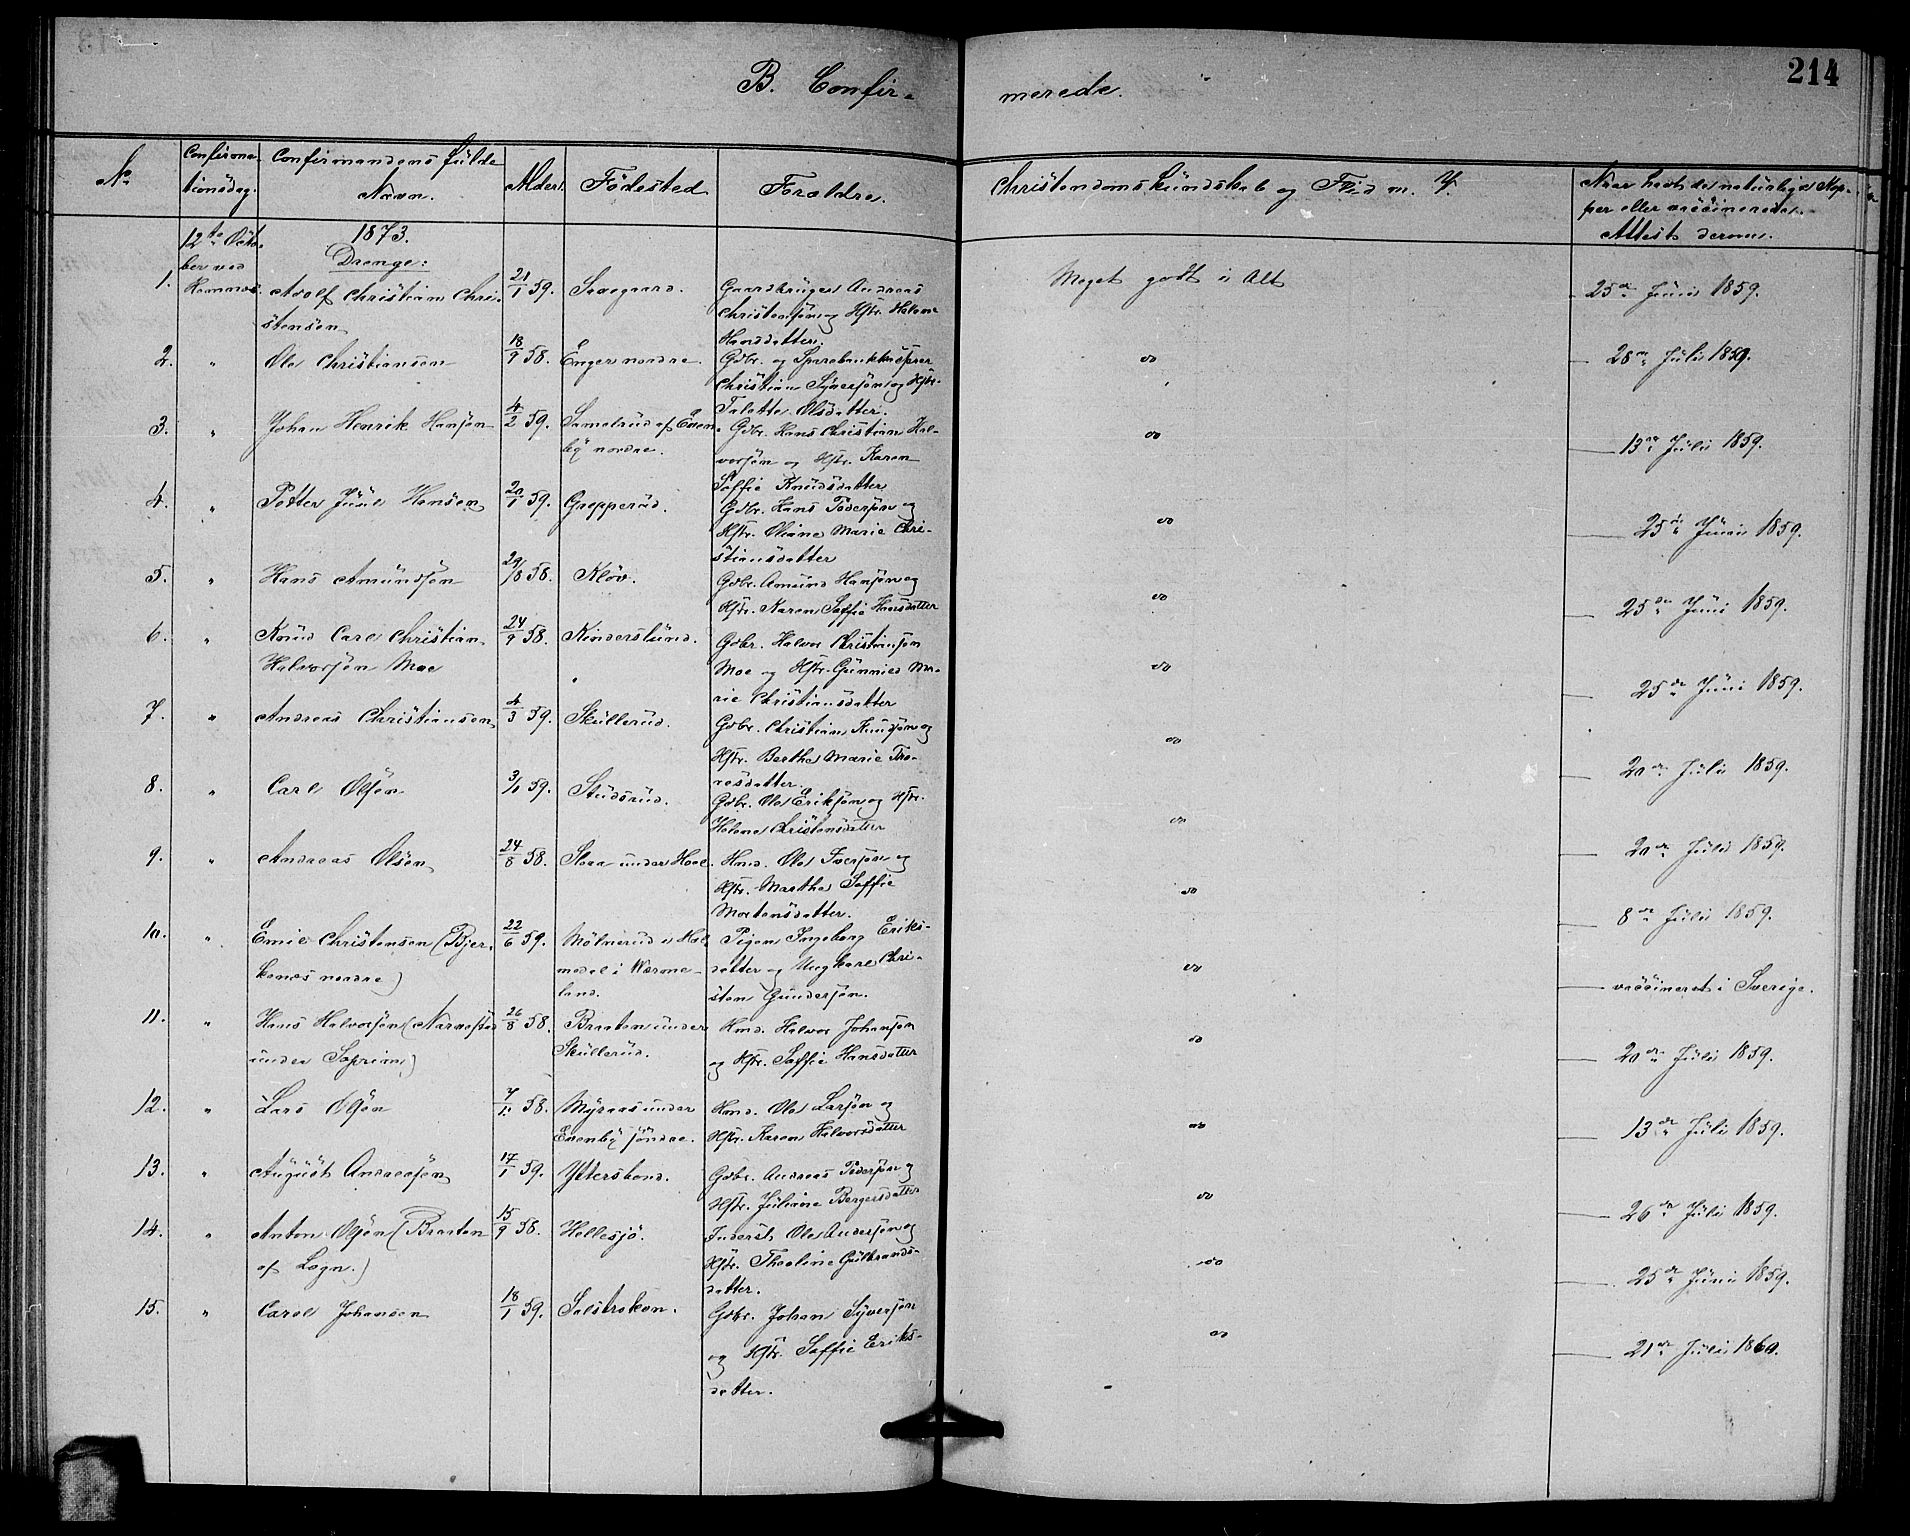 214
B. Confirmerede.
No
Confirmationsdag.
Confirmandens fulde Navn.
Alder.
Födested
Forældre.
Christendomskundskab og Flid m. V.
Naar havt de naturlige Kopper eller vaccinerede. Attest derom.
12te October ved
1873.
Drenge:
1. Adolf Christian Christensen 21/1 59. Gaardbruger Andreas Christensen og Hstr. Helene Hansdatter. Meget godt i Alt 25de Juni 1859.
2. " Ole Christiansen 18/9 58. Enger nordre. Gdbr. og Sparebankkasserer Christian Syversøn og Hstr. Talette Olsdatter. do 28de Juli 1859.
3. " Johan Henrik Hansøn 4/2 59. af Evenby nordre. Gdbr. Hans Christian Halvorsøn og Hstr. Karen Soffie Knudsdatter do 13de Juli 1859.
4. " Petter Juul Hansen 20/1 59. Grepperud. Gdbr. Hans Pedersøn og Hstr. Oliane Marie Christiansdatter do 25de Juni 1859.
5. " Hans Amundsøn 29/8 58. Kløv. Gdbr. Amund Hansøn og Hstr. Karen Soffie Hansdatter do 25de Juni 1859.
6. " Knud Carl Christian Halvorsøn Moe 24/9 58. Kinderslund. Gdbr. Halvor Christiansøn Moe og Hstr. Gunnild Marie Christiansdatter do 25de Juni 1859.
7. " Andreas Christiansen 4/3 59. Skullerud. Gdbr. Christian Knudsøn og Hstr. Berthe Marie Thoresdatter. do 20de Juli 1859.
8. " Carl Olsøn 3/1 59. Studsrud. Gdbr. Ole Eriksøn og Hstr. Helene Christensdatter do 20de Juli 1859.
9. " Andreas Olsen 24/8 58. under Hoel. Hmd. Ole Iversøn og Hstr. Marthe Soffie Mortensdatter. do 8de Juli 1859.
10. " Emil Christensen (Bjerkenæs nordre) 22/6 59. Mölnerud i Holmedal i Wærmeland. Pigen Ingeborg Eriksdatter og Ungkarl Christen Gundersøn. do vaccineret i Sverige.
11. " Hans Halvorsøn (Narvestad under Soprim) 26/8 58. Braaten under Skullerud. Hmd. Halvor Johansøn og Hstr. Soffie Hansdatter do 20de Juli 1859.
12. " Lars Olsøn 7/11 58. Myraas under Evenby söndre. Hmd. Ole Larsøn og Hstr. Karen Halvorsdatter do 13de Juli 1859.
13. " August Andreasøn 17/1 59. Ytterstrand. Gdbr. Andreas Pedersøn og Hstr. Juliane Bergersdatter do 26de Juli 1859.
14. " Anton Olsøn (Braaten af Logn.) 15/9 58. Hellesjö. Inderst Ole Andersøn og Hstr. Theoline Gulbrandsdatter. do 25de Juni 1859.
15. " Carl Johansen 18/1 59. Selstrøken. Gdbr. Johan Syversøn og Hstr. Soffie Eriksdatter. do 21de Juli 1860.